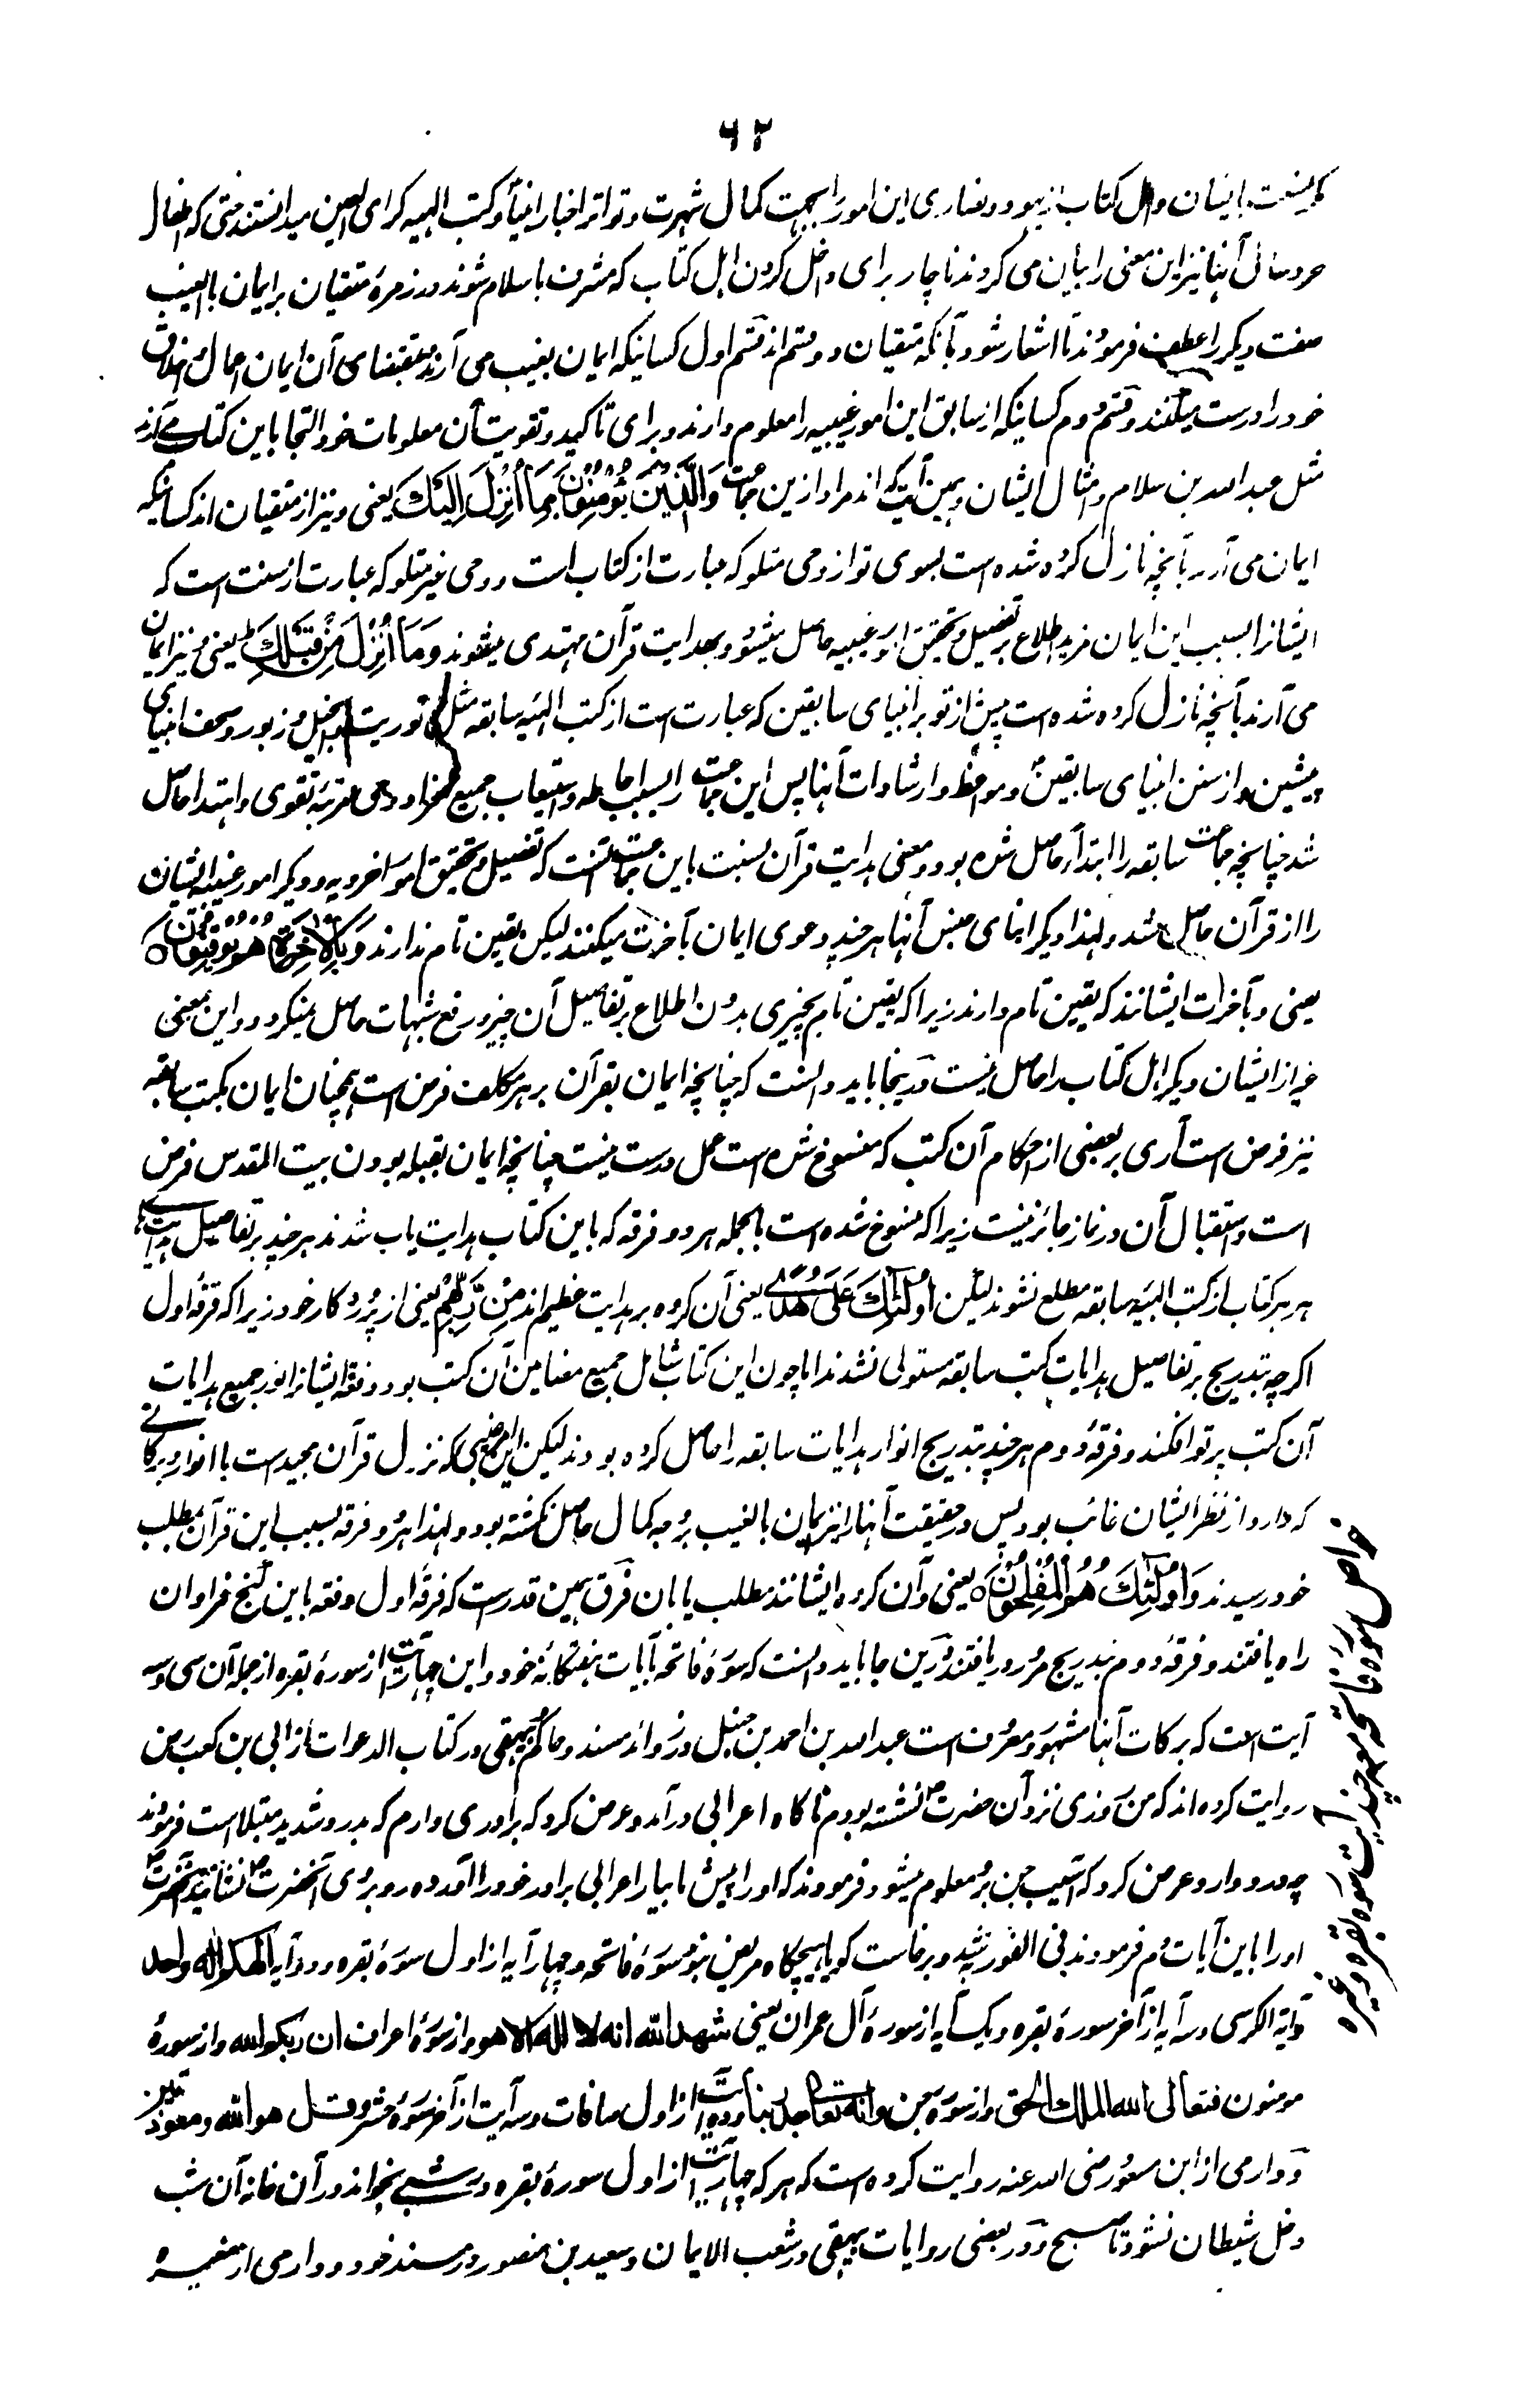 ۶۲
که بنسبت ایشان و اهل کتاب از یهود و نصاری این امور را بجهت کمال شهرت و تواتر اخبار انبیا و کتب الهیه کرای العین میدانستند حتی که اطفال
و نسائی آنها نیز این معنی را بیان می کردند ناچار برای داخل کردن اهل کتاب که مشرف باسلام شوند در زمرهٔ متقیان بر ایمان بالغیب
صفت دیگر را عطف فرمودند تا اشعار شود بآنکه متقیان دو قسم اند قسم اول کسانیکه ایمان بغیب می آرند و بمقتضای آن ایمان اعمال و اخلاق
خود را درست میکنند و قسم دوم کسانیکه از سابق این امور غیبیه را معلوم دارند و برای تاکید و تقویت آن معلومات خود التجا باین کتاب می آرند
مثل عبد الله بن سلام و امثال ایشان و همین جماعت اند مراد ازین آیت وَالَّذِینَ یُؤمِنُونَ بِمَا اُنزِلَ اِلَیکَ یعنی و نیز از متقیان اند کسانیکه
ایمان می آرند بآنچه نازل کرده شده است بسوی تو از وحی متلو که عبارت از کتاب است و وحی غیر متلو که عبارت از سنت است که
ایشانرا بسبب این ایمان مزید اطلاع بر تفصیل و تحقیق امور غیبیه حاصل میشود و بهدایت قرآن مهتدی میشوند وَمَا اُنزِلَ مِن قَبلِکَ یعنی و نیز ایمان
می آرند بآنچه نازل کرده شده است پیش از تو بر انبیای سابقین که عبارت است از کتب الهیه سابقه مثل توریت و انجیل و زبور و صحف انبیای
پیشین و از سنن انبیای سابقین و مواعظ و ارشادات آنها پس این جماعت را بسبب احاطه و استیعاب جمیع وحی مرتبهٔ تقوی و اهتدا حاصل
شد چنانچه جماعت سابقه را ابتداً حاصل شده بود و معنی هدایت قرآن بنسبت باین جماعت آنست که تفصیل و تحقیق امور اخرویه و دیگر امور غیبیه ایشان
را از قرآن حاصل شد و لهذا دیگر ابنای جنس آنها هر چند دعوی ایمان بآخرت میکنند لیکن یقین تام ندارند وَبِالآخِرَةِ هُم یُوقِنُونَ
یعنی و بآخرت ایشانند که یقین تام دارند زیرا که یقین تام بچیزی بدون اطلاع بر تفاصیل آن چیز و رفع شبهات حاصل نمیگردد و این معنی
غیر از ایشان دیگر اهل کتاب را حاصل نیست و درینجا باید دانست که چنانچه ایمان بقرآن بر هر مکلف فرض است همچنان ایمان بکتب سابقه
نیز فرض است آری بر بعضی از احکام آن کتب که منسوخ شده است عمل درست نیست چنانچه ایمان بقبله بودن بیت المقدس فرض
است و استقبال آن در نماز جائز نیست زیرا که منسوخ شده است بالجمله هر دو فرقه که باین کتاب هدایت یاب شدند هر چند بر تفاصیل هدایت
هر هر کتاب از کتب الهیه سابقه مطلع نشوند لیکن اُولٰئِکَ عَلَىٰ هُدًى یعنی آن گروه بر هدایت عظیم اند مِن رَّبِّهِم یعنی از پروردگار خود زیرا که فرقهٔ اول
اگرچه بتدریج بر تفاصیل هدایات کتب سابقه مستولی نشدند اما چون این کتاب شامل جمیع مضامین آن کتب بود دفعةً ایشانرا نور جمیع هدایات
آن کتب پرتو افکند و فرقهٔ دوم هر چند بتدریج انوار هدایات سابقه را حاصل کرده بودند لیکن این امر غیبی که نزول قرآن مجید است با انوار و برکاتی
که دارد از نظر ایشان غائب بود پس در حقیقت آنها را نیز ایمان بالغیب بوجه کمال حاصل نگشته بود و لهذا هر دو فرقه بسبب این قرآن بمطلب
خود رسیدند وَاُولٰئِکَ هُمُ المُفلِحُونَ یعنی و آن گروه ایشانند مطلب یابان فرق همین قدر است که فرقهٔ اول دفعه باین گنج فراوان
راه یافتند و فرقهٔ دوم بتدریج مرور یافتند و درین جا باید دانست که سورهٔ فاتحه بآیات هفتگانهٔ خود و این چهار آیت از سورهٔ بقره از جمله آن سی و سه
آیت است که برکات آنها مشهور و معروف است عبد الله بن احمد بن حنبل در زوائد مسند و حاکم و بیهقی در کتاب الدعوات از ابی بن کعب رض
روایت کرده اند که من روزی نزد آن حضرت ص نشسته بودم ناگاه اعرابی درآمد و عرض کرد که برادری دارم که بدرد شدید مبتلا است فرمودند
چه درد دارد عرض کرد که آسیب جن بر معلوم میشود فرمودند که او را پیش ما بیار اعرابی برادر خود را آورده روبروی آنحضرت ص نشانید آنحضرت
او را باین آیات دم فرمودند فی الفور شفا یافت و برخاست گویا هیچگاه مریض نبود سورهٔ فاتحه و چهار آیه از اول سورهٔ بقره و دو آیه الهکم اله واحد
و آیة الکرسی و سه آیه از آخر سورهٔ بقره و یک آیه از سورهٔ آل عمران یعنی شهد الله انه لا اله الا هو و از سورهٔ اعراف ان ربکم الله و از سورهٔ
مومنون فتعالی الله الملک الحق و از سورهٔ جن وانه تعالی جد ربنا و ده آیت از اول صافات و سه آیت از آخر سورهٔ حشر و قل هو الله و معوذتین
و دارمی از ابن مسعود رضی الله عنه روایت کرده است که هر که چهار آیت از اول سورهٔ بقره در شبی بخواند در آن خانه آن شب
دخل شیطان نشود تا صبح و در بعضی روایات بیهقی در شعب الایمان و سعید بن منصور در مسند خود و دارمی از مغیره
خواص سورهٔ فاتحه مع چند آیت سوره بقره وغیره